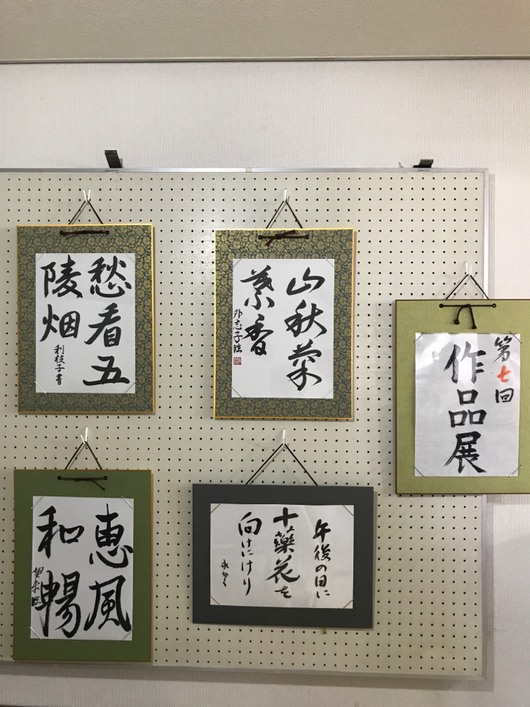 愁看五
陵烟
利枝子書
山秋
香
第七回
作品展
恵風
和暢
午後の日に
十藥花を
向けにけり